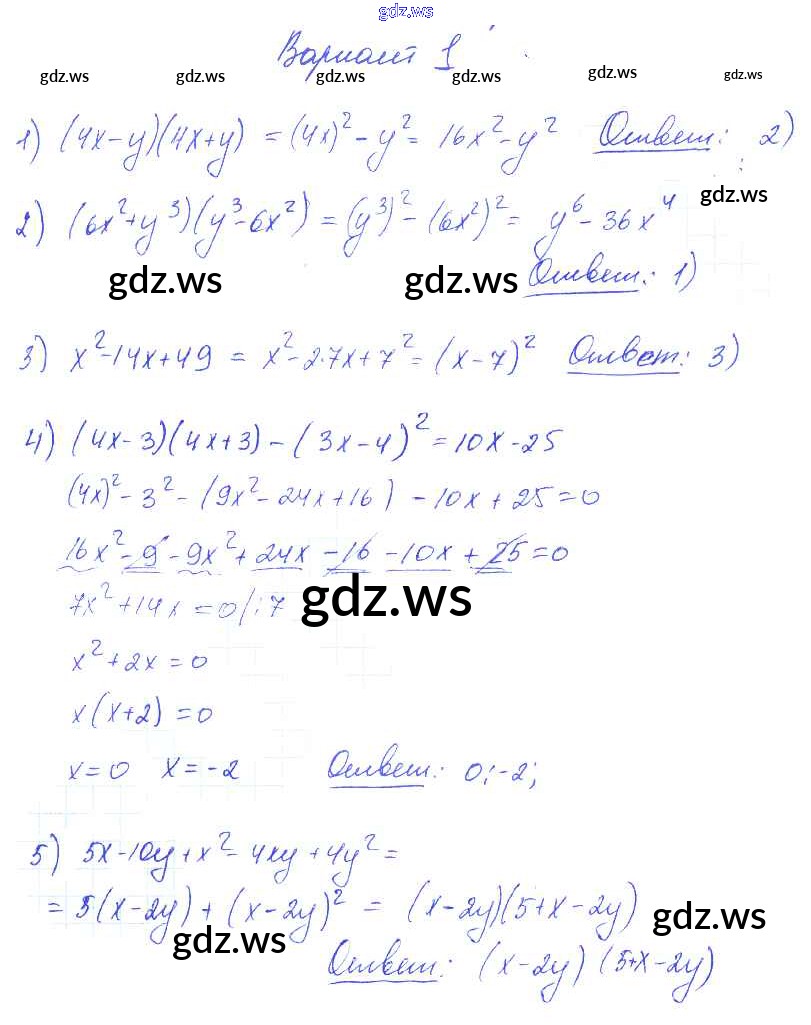 gdz.ws
Вариант 1
gdz.ws gdz.ws gdz.ws gdz.ws gdz.ws
1) (4x-y)(4x+y) = (4x)² - y² = 16x² - y² Ответ: 2)
gdz.ws
2) (6x²+y³)(y³-6x²) = (y³)² - (6x²)² = y⁶ - 36x⁴
gdz.ws gdz.ws Ответ: 1)
3) x²-14x+49 = x²-2·7x+7² = (x-7)² Ответ: 3)
4) (4x-3)(4x+3) - (3x-4)² = 10x-25
(4x)² - 3² - (9x²-24x+16) - 10x + 25 = 0
16x² - 9 - 9x² + 24x - 16 - 10x + 25 = 0
7x² + 14x = 0 |:7
gdz.ws
x² + 2x = 0
x(x+2) = 0
x=0 x=-2 Ответ: 0; -2;
5) 5x-10y+x²-4xy+4y² =
= 5(x-2y) + (x-2y)² = (x-2y)(5+x-2y)
gdz.ws gdz.ws
Ответ: (x-2y)(5+x-2y)